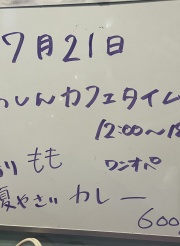 7月21日
わしんカフェタイム
12:00〜18
り もも
ワンオペ
夏やさい カレー
600